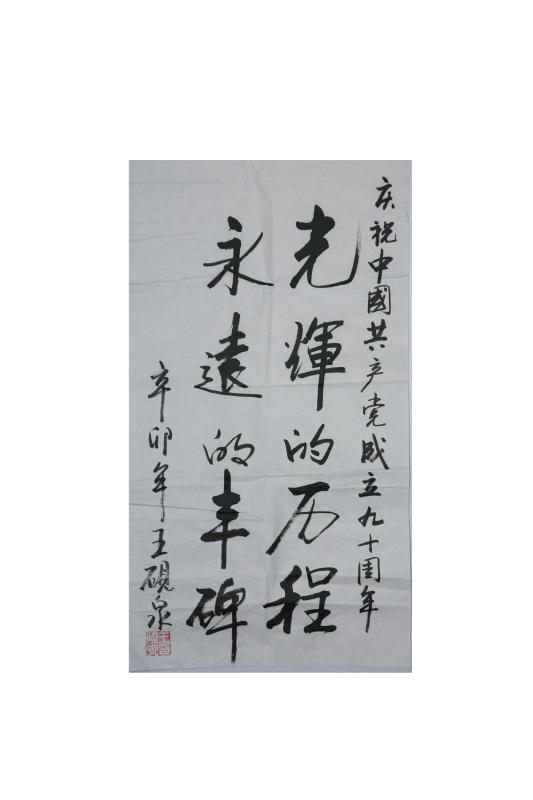 庆祝中國共产党成立九十周年
光輝的历程
永遠的丰碑
辛卯年王硯泉